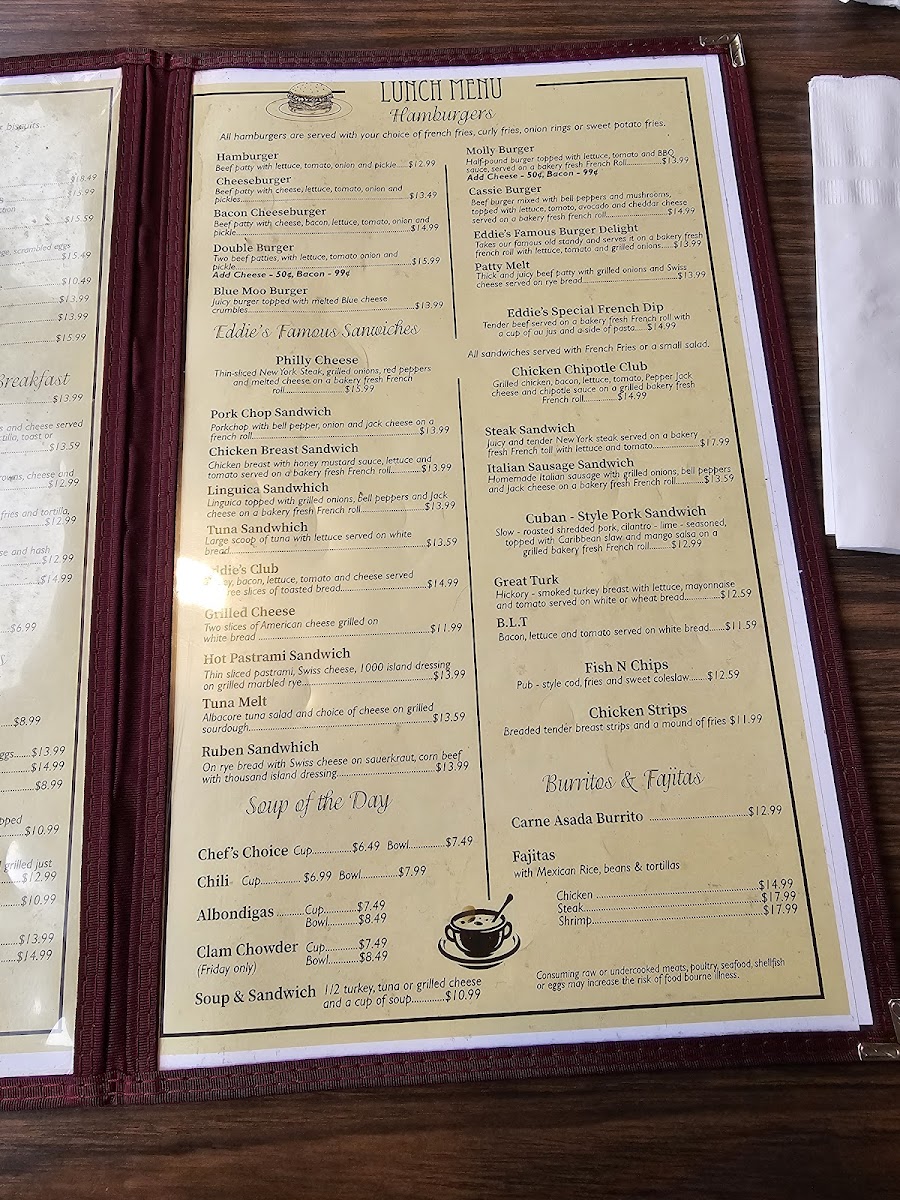 r biscuits...
$18.49
$15.99
ction
$15.59
ge, scrambled eggs
$15.49
$10.49
$13.99
$13.99
$15.99
Breakfast
$13.99
s and cheese served
tilla, toast or
$13.59
rowns, cheese and
$12.99
fries and tortilla,
$12.99
se and hash
$12.99
$14.99
$6.99
s
$8.99
eggs......$13.99
$14.99
$8.99
pped
$10.99
grilled just
$12.99
$10.99
$13.99
$14.99
LUNCH MENU
Hamburgers
All hamburgers are served with your choice of french fries, curly fries, onion rings or sweet potato fries.
Hamburger
Beef patty with lettuce, tomato, onion and pickle.....$12.99
Cheeseburger
Beef patty with cheese, lettuce, tomato, onion and
pickles...$13.49
Bacon Cheeseburger
Beef patty with cheese, bacon, lettuce, tomato, onion and
pickle...$14.99
Double Burger
Two beef patties, with lettuce, tomato onion and
pickle...$15.99
Add Cheese - 50¢, Bacon - 99¢
Blue Moo Burger
Juicy burger topped with melted Blue cheese
crumbles...$13.99
Eddie's Famous Sanwiches
Philly Cheese
Thin-sliced New York Steak, grilled onions, red peppers
and melted cheese on a bakery fresh French
roll...$15.99
Pork Chop Sandwich
Porkchop with bell pepper, onion and jack cheese on a
french roll...$13.99
Chicken Breast Sandwich
Chicken breast with honey mustard sauce, lettuce and
tomato served on a bakery fresh French roll...$13.99
Linguica Sandwhich
Linguica topped with grilled onions, bell peppers and Jack
cheese on a bakery fresh French roll...$13.99
Tuna Sandwhich
Large scoop of tuna with lettuce served on white
bread...$13.59
Eddie's Club
bacon, lettuce, tomato and cheese served
slices of toasted bread...$14.99
Grilled Cheese
Two slices of American cheese grilled on
white bread ...$11.99
Hot Pastrami Sandwich
Thin sliced pastrami, Swiss cheese, 1000 island dressing
on grilled marbled rye...$13.99
Tuna Melt
Albacore tuna salad and choice of cheese on grilled
sourdough...$13.59
Ruben Sandwhich
On rye bread with Swiss cheese on sauerkraut, corn beef
with thousand island dressing...$13.99
Soup of the Day
Chef's Choice Cup...$6.49 Bowl...$7.49
Chili Cup...$6.99 Bowl...$7.99
Albondigas ...Cup...$7.49
Bowl...$8.49
Clam Chowder Cup...$7.49
(Friday only) Bowl...$8.49
Soup & Sandwich 1/2 turkey, tuna or grilled cheese
and a cup of soup...$10.99
Molly Burger
Half-pound burger topped with lettuce, tomato and BBQ
sauce, served on a bakery fresh French Roll...$13.99
Add Cheese - 50¢, Bacon - 99¢
Cassie Burger
Beef burger mixed with bell peppers and mushrooms,
topped with lettuce, tomato, avocado and cheddar cheese
served on a bakery fresh french roll...$14.99
Eddie's Famous Burger Delight
Takes our famous old standy and serves it on a bakery fresh
french roll with lettuce, tomato and grilled onions.....$13.99
Patty Melt
Thick and juicy beef patty with grilled onions and Swiss
cheese served on rye bread...$13.99
Eddie's Special French Dip
Tender beef served on a bakery fresh French roll with
a cup of au jus and a side of pasta.... $14.99
All sandwiches served with French Fries or a small salad.
Chicken Chipotle Club
Grilled chicken, bacon, lettuce, tomato, Pepper Jack
cheese and chipotle sauce on a grilled bakery fresh
French roll...$14.99
Steak Sandwich
Juicy and tender New York steak served on a bakery
fresh French toll with lettuce and tomato...$17.99
Italian Sausage Sandwich
Homemade Italian sausage with grilled onions, bell peppers
and Jack cheese on a bakery fresh French roll...$13.59
Cuban - Style Pork Sandwich
Slow - roasted shredded pork, cilantro - lime - seasoned,
topped with Caribbean slaw and mango salsa on a
grilled bakery fresh French roll...$12.99
Great Turk
Hickory - smoked turkey breast with lettuce, mayonnaise
and tomato served on white or wheat bread...$12.59
B.L.T
Bacon, lettuce and tomato served on white bread......$11.59
Fish N Chips
Pub - style cod, fries and sweet coleslaw...... $12.59
Chicken Strips
Breaded tender breast strips and a mound of fries $11.99
Burritos & Fajitas
Carne Asada Burrito ...$12.99
Fajitas
with Mexican Rice, beans & tortillas
Chicken ...$14.99
Steak...$17.99
Shrimp...$17.99
Consuming raw or undercooked meats, poultry, seafood, shellfish
or eggs may increase the risk of food bourne illness.